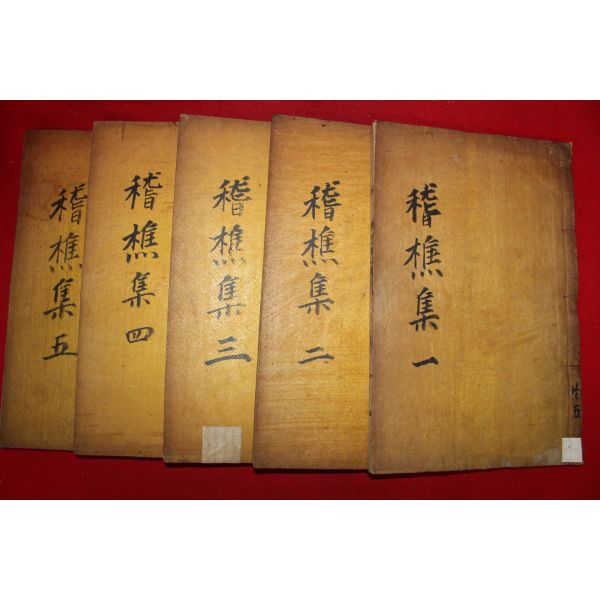 稽樵集 一
共五
稽樵集 二
稽樵集 三
稽樵集 四
稽樵集 五